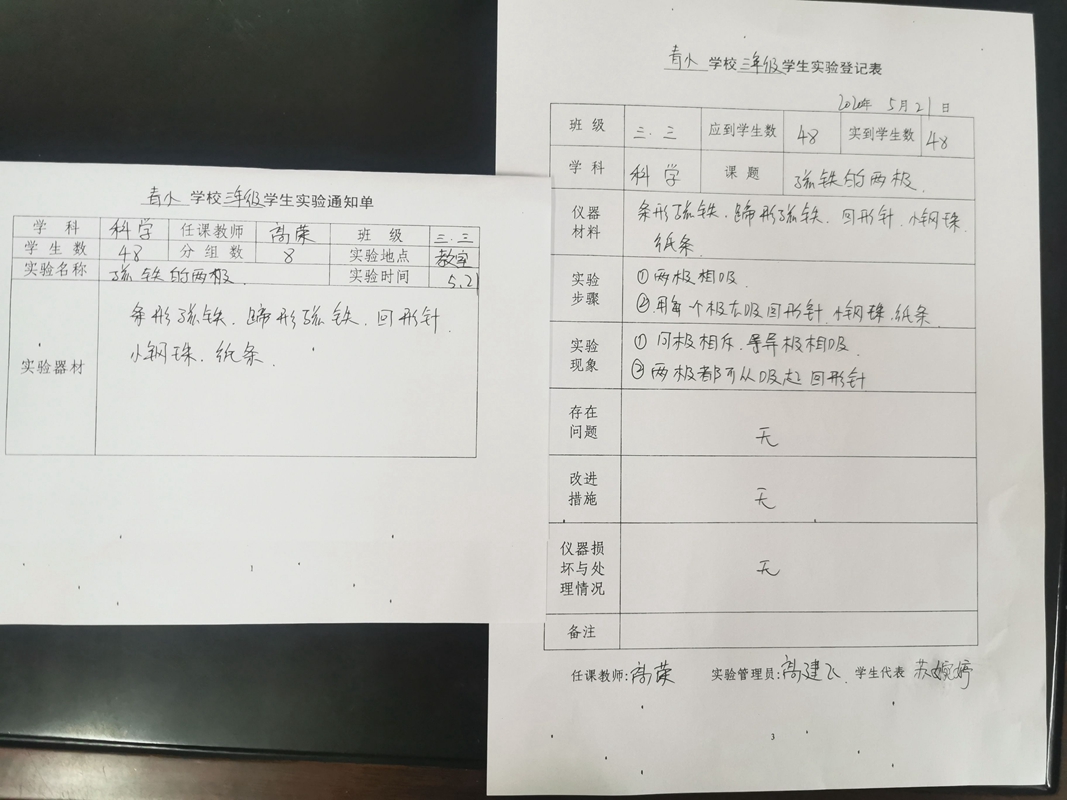 青小 学校 三年级 学生实验通知单
学 科 科学 任课教师 高荣 班 级 三.三
学 生 数 48 分 组 数 8 实验地点 教室
实验名称 磁铁的两极. 实验时间 5.21
实验器材
条形磁铁. 蹄形磁铁. 回形针.
小钢珠. 纸条.
1
青小 学校 三年级 学生实验登记表
2020年 5 月 21 日
班 级 三.三 应到学生数 48 实到学生数 48
学 科 科学 课 题 磁铁的两极.
仪器
材料
条形磁铁. 蹄形磁铁. 回形针. 小钢珠.
纸条.
实验
步骤
①两极相吸.
②用每个极去吸回形针. 小钢珠. 纸条.
实验
现象
① 同极相斥. 异极相吸.
② 两极都可以吸起 回形针
存在
问题
无
改进
措施
无
仪器损
坏与处
理情况
无
备注
任课教师: 高荣 实验管理员: 高建飞. 学生代表 苏婷
3